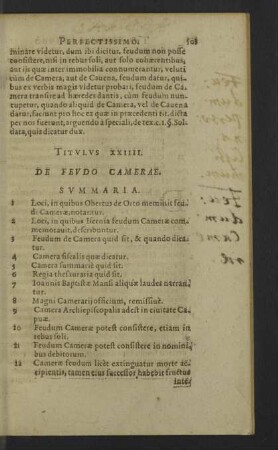 PERFECTISSIMO. 501
minare videtur, dum ibi dicitur, feudum non posse
consistere, nisi in rebus soli, aut solo cohærentibus,
aut ijs quæ inter immobilia connumerantur, veluti
cùm de Camera, aut de Cauena, feudum datur, quibus
ex verbis magis videtur probari, feudum de Camera
transire ad hæredes dantis, cùm feudum nuncupetur,
quando aliquid de Camera, vel de Cauena
datur, faciunt pro hoc ea quæ in præcedenti tit. dicta
per nos fuerunt, arguendo à speciali, de tex. c. 1. §. Soldata,
quis dicatur dux.
TITVLVS XXIIII.
DE FEVDO CAMERAE.
SVMMARIA.
1 Loci, in quibus Obertus de Orto meminit feudi
Cameræ, notantur.
2 Loci, in quibus Isernia feudum Cameræ commemorauit,
describuntur.
3 Feudum de Camera quid sit, & quando dicatur.
4 Camera fiscalis quæ dicatur.
5 Camera summariæ quid sit.
6 Regia thesauraria quid sit.
7 Ioannis Baptistæ Mansi aliquæ laudes narrantur.
8 Magni Camerarij officium, remissiuè.
9 Camera Archiepiscopalis adest in ciuitate Capuæ.
10 Feudum Cameræ potest consistere, etiam in
rebus soli.
11 Feudum Cameræ potest consistere in nominibus
debitorum.
12 Cameræ feudum licèt extinguatur morte accipientis,
tamen eius successor habebit fructus